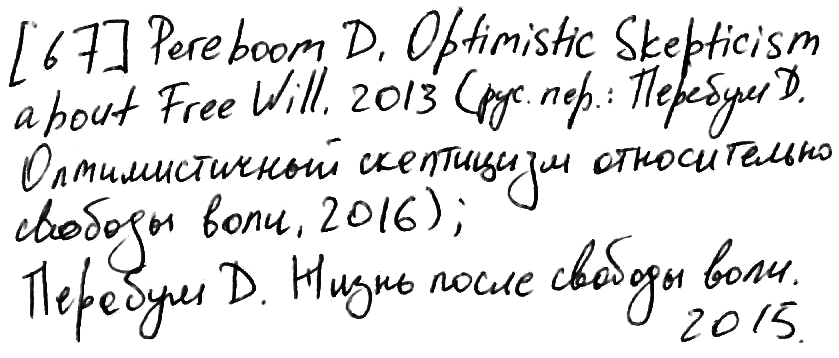 [67] Pereboom D. Optimistic Skepticism
about Free Will. 2013 (рус. пер.: Перебум Д.
Оптимистичный скептицизм относительно
свободы воли, 2016);
Перебум Д. Жизнь после свободы воли.
2015.